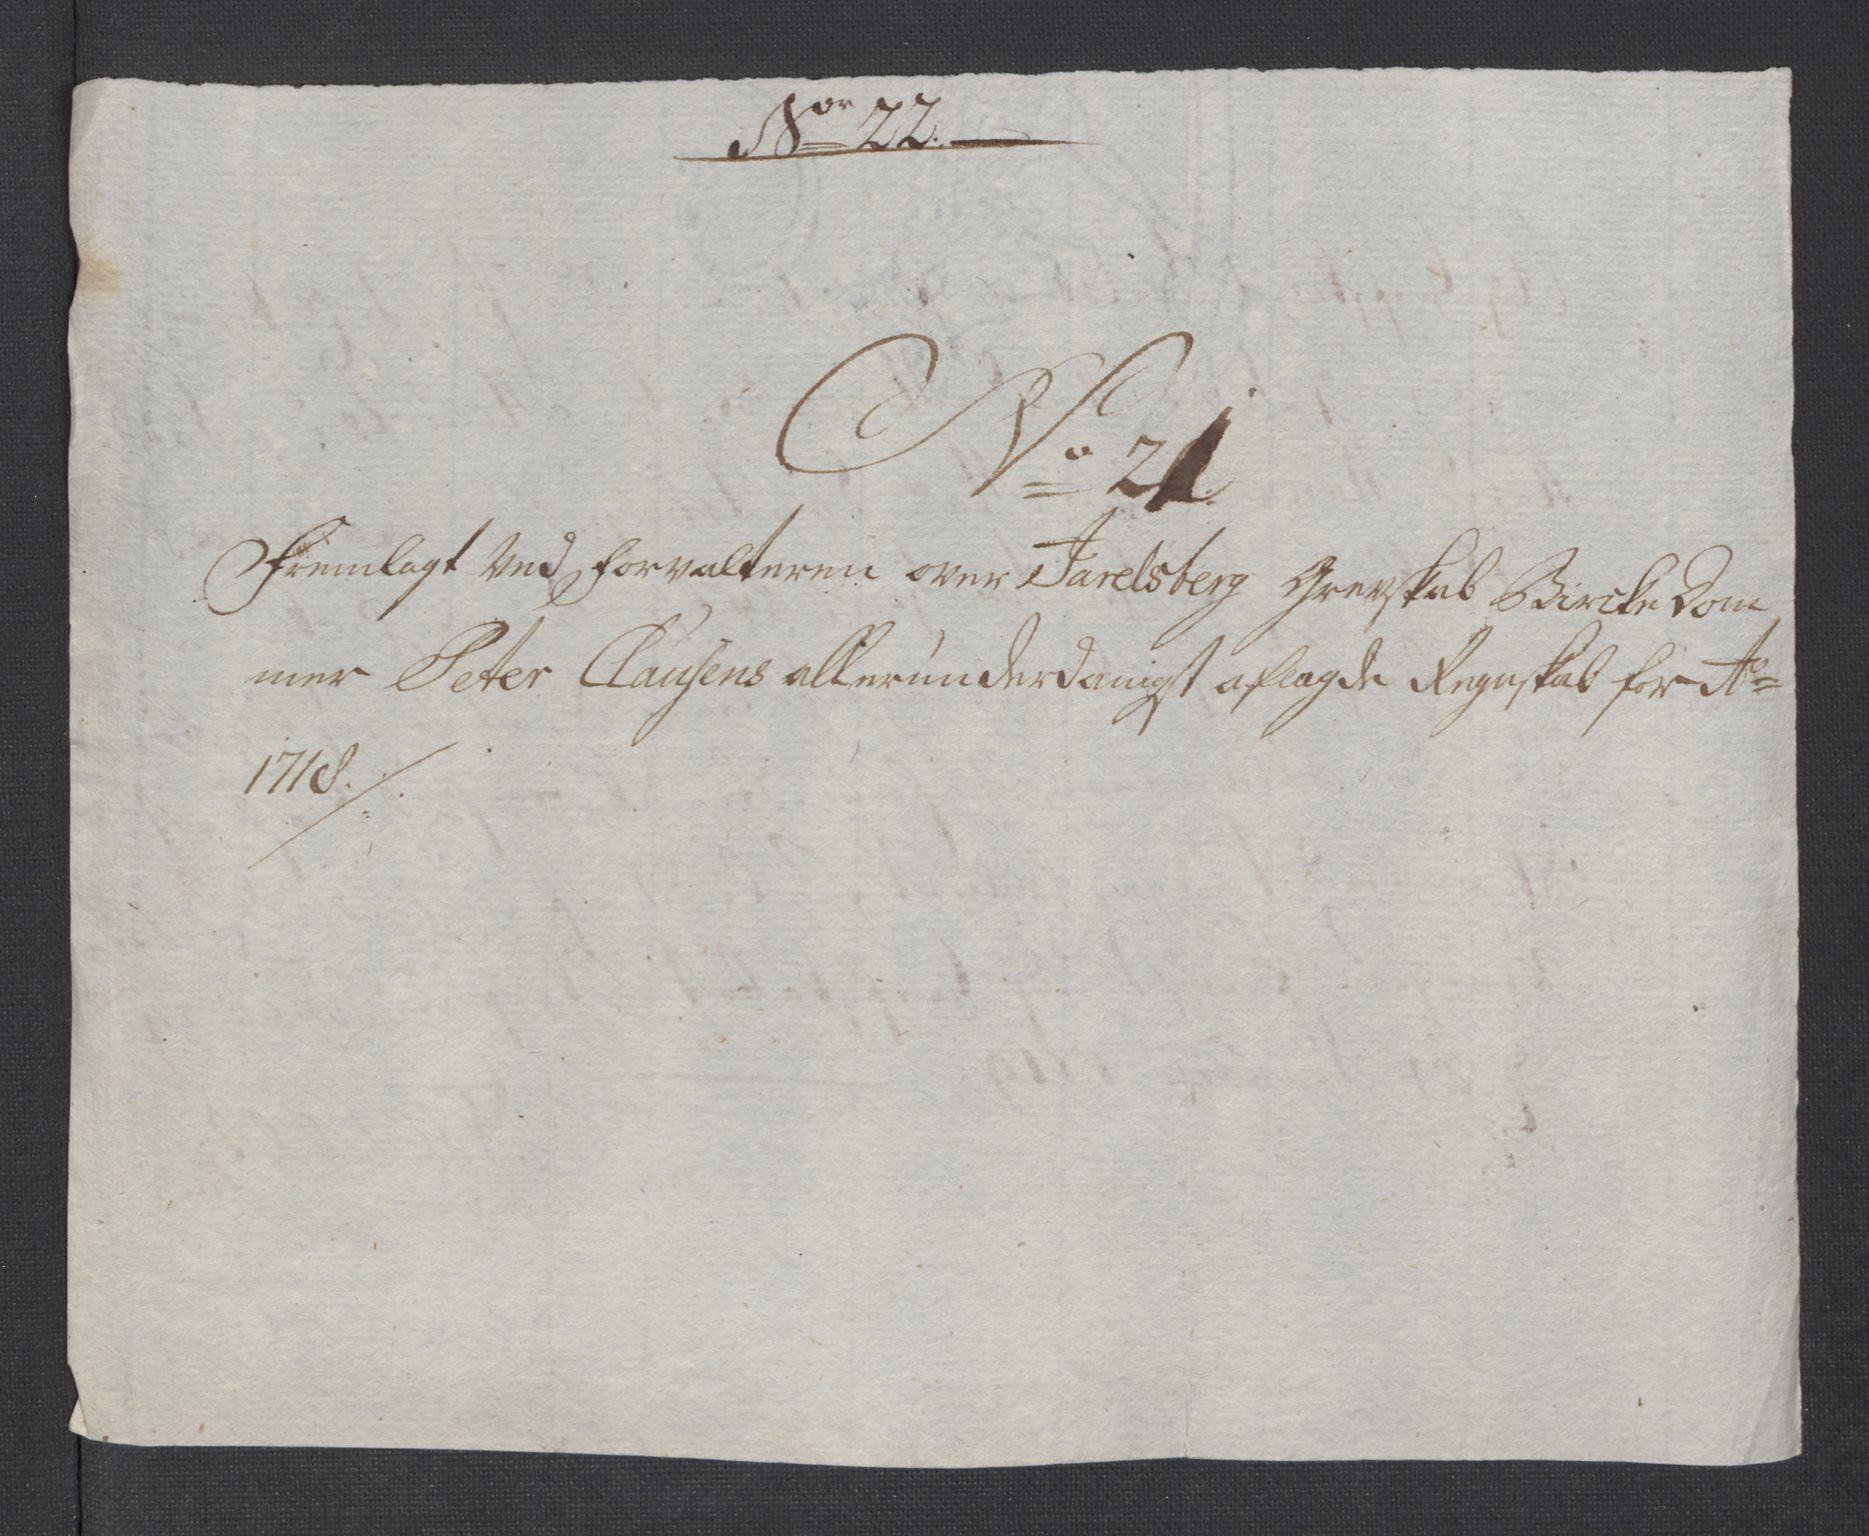 Nor 22.
No 21.
Fremlagt Ved forvalteren over Jarelsberg Grevskab Bircke Dom
mer Peter Clausens allerunderdanigst aflagde Regnskab for Ao
1718.